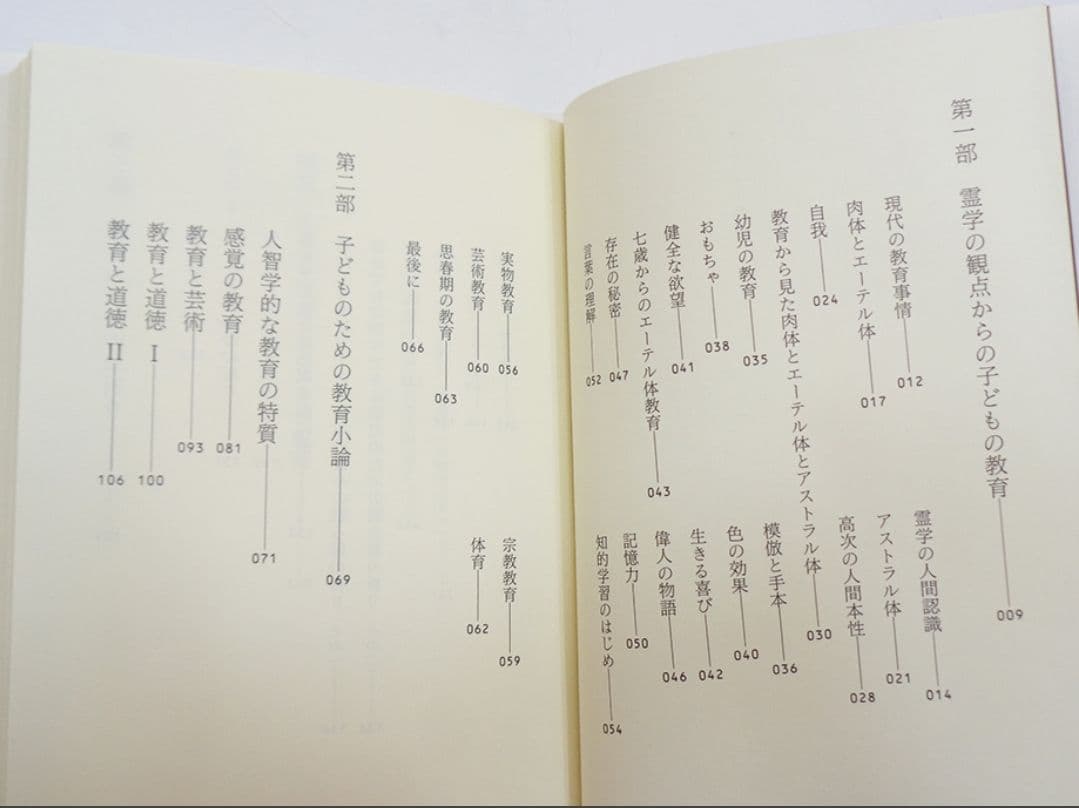 第一部　霊学の観点からの子どもの教育──009
現代の教育事情──012
霊学の人間認識──014
肉体とエーテル体──017
アストラル体──021
自我──024
高次の人間本性──028
教育から見た肉体とエーテル体とアストラル体──030
幼児の教育──035
模倣と手本──036
おもちゃ──038
色の効果──040
健全な欲望──041
生きる喜び──042
七歳からのエーテル体教育──043
偉人の物語──046
存在の秘密──047
記憶力──050
言葉の理解──052
知的学習のはじめ──054
実物教育──056
宗教教育──059
芸術教育──060
体育──062
思春期の教育──063
最後に──066
第二部　子どものための教育小論──069
人智学的な教育の特質──071
感覚の教育──081
教育と芸術──093
教育と道徳 Ⅰ──100
教育と道徳 Ⅱ──106